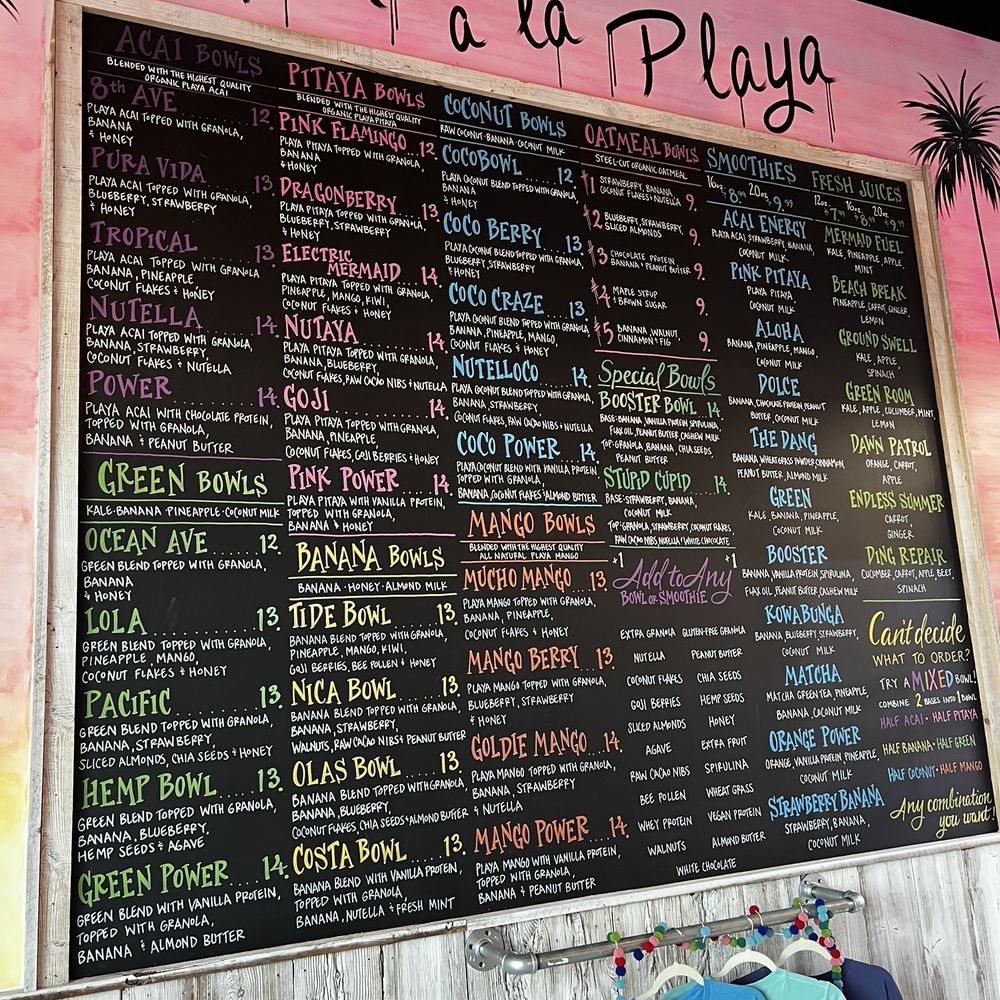 a la Playa
ACAI BOWLS
BLENDED WITH THE HIGHEST QUALITY
ORGANIC PLAYA ACAI
8th AVE 12.
PLAYA ACAI TOPPED WITH GRANOLA,
BANANA
& HONEY
PURA VIDA 13.
PLAYA ACAI TOPPED WITH GRANOLA,
BLUEBERRY, STRAWBERRY
& HONEY
TROPICAL 13.
PLAYA ACAI TOPPED WITH GRANOLA
BANANA, PINEAPPLE
COCONUT FLAKES & HONEY
NUTELLA 14.
PLAYA ACAI TOPPED WITH GRANOLA,
BANANA, STRAWBERRY,
COCONUT FLAKES & NUTELLA
POWER 14.
PLAYA ACAI WITH CHOCOLATE PROTEIN,
TOPPED WITH GRANOLA,
BANANA & PEANUT BUTTER
GREEN BOWLS
KALE·BANANA·PINEAPPLE·COCONUT MILK
OCEAN AVE.......12.
GREEN BLEND TOPPED WITH GRANOLA,
BANANA
& HONEY
LOLA.............13.
GREEN BLEND TOPPED WITH GRANOLA,
PINEAPPLE, MANGO,
COCONUT FLAKES & HONEY
PACIFIC..........13.
GREEN BLEND TOPPED WITH GRANOLA,
BANANA, STRAWBERRY,
SLICED ALMONDS, CHIA SEEDS & HONEY
HEMP BOWL......13.
GREEN BLEND TOPPED WITH GRANOLA,
BANANA, BLUEBERRY,
HEMP SEEDS & AGAVE
GREEN POWER....14.
GREEN BLEND WITH VANILLA PROTEIN,
TOPPED WITH GRANOLA,
BANANA & ALMOND BUTTER
PITAYA BOWLS
BLENDED WITH THE HIGHEST QUALITY
ORGANIC PLAYA PITAYA
PINK FLAMINGO...12.
PLAYA PITAYA TOPPED WITH GRANOLA,
BANANA
& HONEY
DRAGONBERRY 13.
PLAYA PITAYA TOPPED WITH GRANOLA,
BLUEBERRY, STRAWBERRY
& HONEY
ELECTRIC
MERMAID 14.
PLAYA PITAYA TOPPED WITH GRANOLA,
PINEAPPLE, MANGO, KIWI,
COCONUT FLAKES & HONEY
NUTAYA 14.
PLAYA PITAYA TOPPED WITH GRANOLA,
BANANA, BLUEBERRY,
COCONUT FLAKES, RAW CACAO NIBS & NUTELLA
GOJI 14.
PLAYA PITAYA TOPPED WITH GRANOLA,
BANANA, PINEAPPLE
COCONUT FLAKES, GOJI BERRIES & HONEY
PINK POWER 14.
PLAYA PITAYA WITH VANILLA PROTEIN,
TOPPED WITH GRANOLA,
BANANA & HONEY
BANANA BOWLS
BANANA·HONEY·ALMOND MILK
TIDE BOWL.....13.
BANANA BLEND TOPPED WITH GRANOLA,
PINEAPPLE, MANGO, KIWI,
GOJI BERRIES, BEE POLLEN & HONEY
NICA BOWL.....13.
BANANA BLEND TOPPED WITH GRANOLA,
BANANA, STRAWBERRY,
WALNUTS, RAW CACAO NIBS & PEANUT BUTTER
OLAS BOWL....13.
BANANA BLEND TOPPED WITH GRANOLA,
BANANA, BLUEBERRY,
COCONUT FLAKES, CHIA SEEDS & ALMOND BUTTER
COSTA BOWL...13.
BANANA BLEND WITH VANILLA PROTEIN,
TOPPED WITH GRANOLA,
BANANA, NUTELLA & FRESH MINT
COCONUT BOWLS
RAW COCONUT·BANANA·COCONUT MILK
COCOBOWL 12.
PLAYA COCONUT BLEND TOPPED WITH GRANOLA,
BANANA
& HONEY
COCO BERRY 13.
PLAYA COCONUT BLEND TOPPED WITH GRANOLA,
BLUEBERRY, STRAWBERRY
& HONEY
COCO CRAZE 13.
PLAYA COCONUT BLEND TOPPED WITH GRANOLA
BANANA, PINEAPPLE, MANGO,
COCONUT FLAKES & HONEY
NUTELLOCO 14.
PLAYA COCONUT BLEND TOPPED WITH GRANOLA,
BANANA, STRAWBERRY,
COCONUT FLAKES, RAW CACAO NIBS & NUTELLA
COCO POWER 14.
PLAYA COCONUT BLEND WITH VANILLA PROTEIN
TOPPED WITH GRANOLA,
BANANA, COCONUT FLAKES & ALMOND BUTTER
MANGO BOWLS
BLENDED WITH THE HIGHEST QUALITY
ALL NATURAL PLAYA MANGO
MUCHO MANGO..13.
PLAYA MANGO TOPPED WITH GRANOLA,
BANANA, PINEAPPLE,
COCONUT FLAKES & HONEY
MANGO BERRY..13.
PLAYA MANGO TOPPED WITH GRANOLA,
BLUEBERRY, STRAWBERRY
& HONEY
GOLDIE MANGO...14.
PLAYA MANGO TOPPED WITH GRANOLA,
BANANA, STRAWBERRY
& NUTELLA
MANGO POWER..14.
PLAYA MANGO WITH VANILLA PROTEIN,
TOPPED WITH GRANOLA,
BANANA & PEANUT BUTTER
OATMEAL BOWLS
STEEL-CUT ORGANIC OATMEAL
#1 STRAWBERRY, BANANA
COCONUT FLAKES & NUTELLA 9.
#2 BLUEBERRY, STRAWBERRY,
SLICED ALMONDS 9.
#3 CHOCOLATE PROTEIN,
BANANA & PEANUT BUTTER 9.
#4 MAPLE SYRUP
& BROWN SUGAR 9.
#5 BANANA, WALNUT,
CINNAMON & FIG 9.
Special Bowls
BOOSTER BOWL 14
BASE-BANANA, VANILLA PROTEIN, SPIRULINA,
FLAX OIL, PEANUT BUTTER, CASHEW MILK
TOP-GRANOLA, BANANA, CHIA SEEDS,
PEANUT BUTTER
STUPID CUPID..14.
BASE-STRAWBERRY, BANANA,
COCONUT MILK
TOP-GRANOLA, STRAWBERRY, COCONUT FLAKES
RAW CACAO NIBS, NUTELLA & WHITE CHOCOLATE
+1 Add to Any +1
BOWL OR SMOOTHIE
EXTRA GRANOLA GLUTEN-FREE GRANOLA
NUTELLA PEANUT BUTTER
COCONUT FLAKES CHIA SEEDS
GOJI BERRIES HEMP SEEDS
SLICED ALMONDS HONEY
AGAVE EXTRA FRUIT
RAW CACAO NIBS SPIRULINA
BEE POLLEN WHEAT GRASS
WHEY PROTEIN VEGAN PROTEIN
WALNUTS ALMOND BUTTER
WHITE CHOCOLATE
SMOOTHIES
16oz. $8.99 20oz. $9.99
ACAI ENERGY
PLAYA ACAI, STRAWBERRY, BANANA,
COCONUT MILK
PINK PITAYA
PLAYA PITAYA,
COCONUT MILK
ALOHA
BANANA, PINEAPPLE, MANGO,
COCONUT MILK
DOLCE
BANANA, CHOCOLATE PROTEIN, PEANUT
BUTTER, COCONUT MILK
THE DANG
BANANA, WHEATGRASS POWDER, CINNAMON,
PEANUT BUTTER, ALMOND MILK
GREEN
KALE, BANANA, PINEAPPLE,
COCONUT MILK
BOOSTER
BANANA, VANILLA PROTEIN, SPIRULINA,
FLAX OIL, PEANUT BUTTER, CASHEW MILK
KOWABUNGA
BANANA, BLUEBERRY, STRAWBERRY,
COCONUT MILK
MATCHA
MATCHA GREEN TEA, PINEAPPLE,
BANANA, COCONUT MILK
ORANGE POWER
ORANGE, VANILLA PROTEIN, PINEAPPLE,
COCONUT MILK
STRAWBERRY BANANA
STRAWBERRY, BANANA,
COCONUT MILK
FRESH JUICES
12oz. $7.99 16oz. $8.99 20oz. $9.99
MERMAID FUEL
KALE, PINEAPPLE, APPLE
MINT
BEACH BREAK
PINEAPPLE, CARROT, GINGER
LEMON
GROUND SWELL
KALE, APPLE
SPINACH
GREEN ROOM
KALE, APPLE, CUCUMBER, MINT,
LEMON
DAWN PATROL
ORANGE, CARROT,
APPLE
ENDLESS SUMMER
CARROT,
GINGER
DING REPAIR
CUCUMBER, CARROT, APPLE, BEET,
SPINACH
Can't decide
WHAT TO ORDER?
TRY A MIXED BOWL!
COMBINE 2 BASES INTO 1 BOWL
HALF ACAI·HALF PITAYA
HALF BANANA·HALF GREEN
HALF COCONUT·HALF MANGO
Any combination
you want!